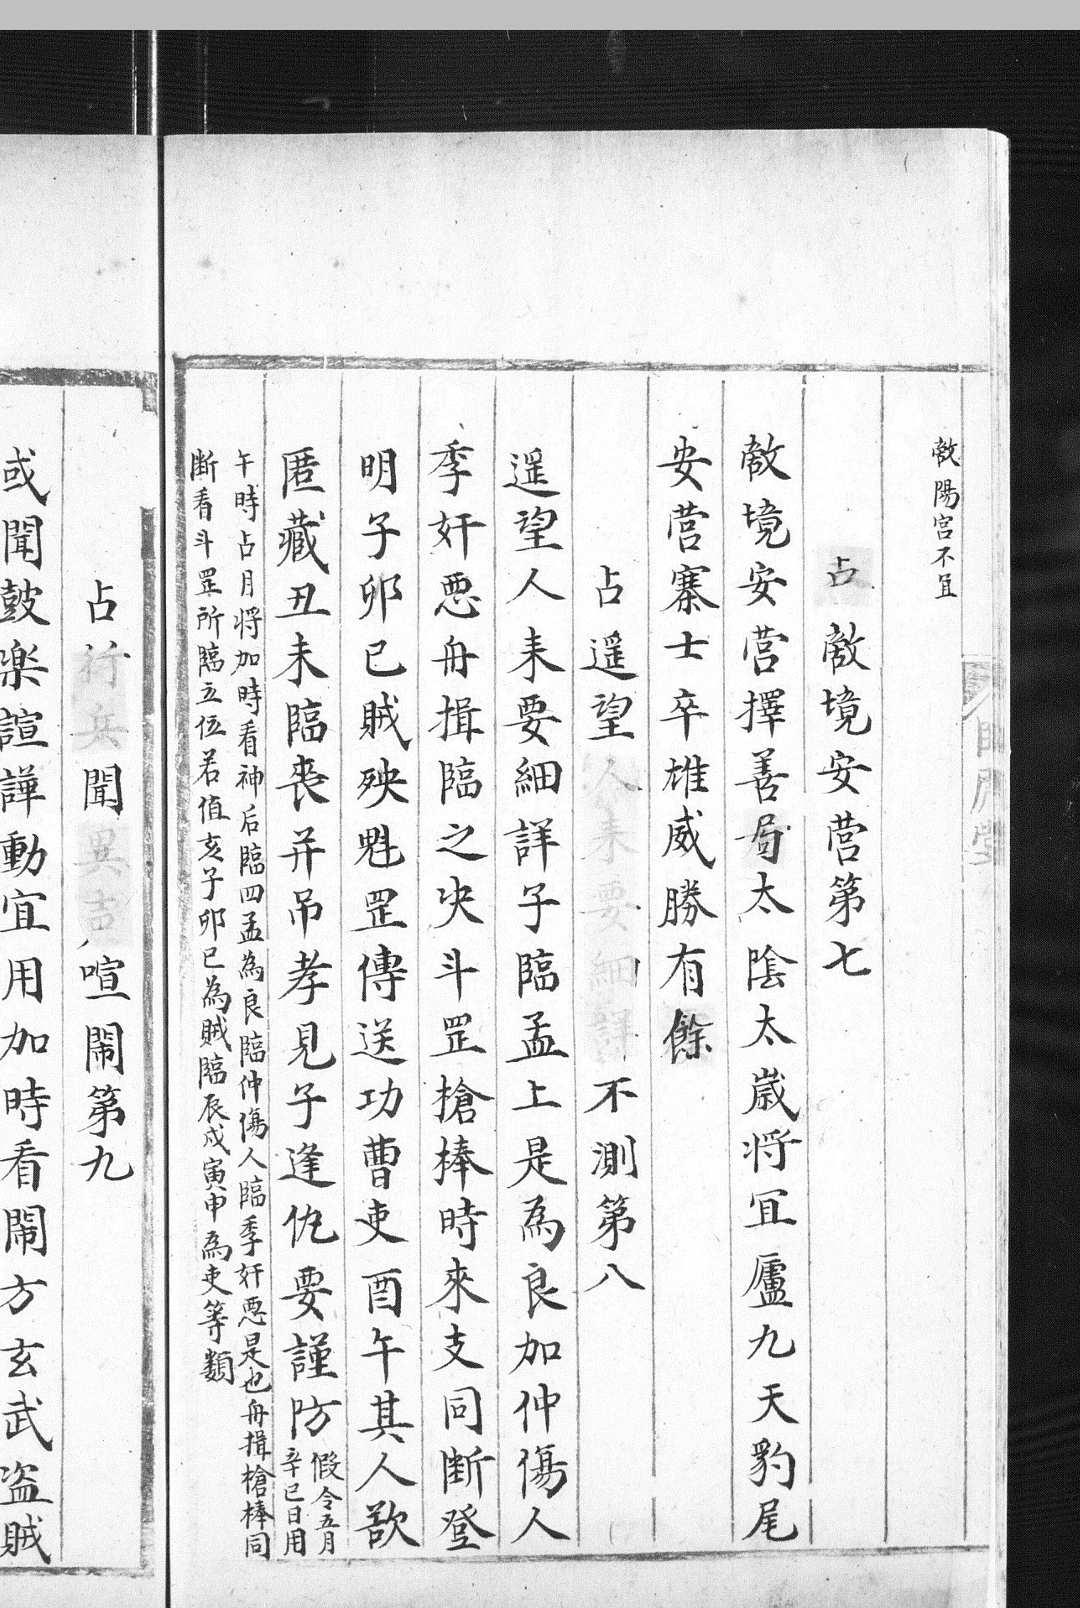 敵陽宮不宜
占敵境安营第七
敵境安营擇善局太陰太歲將宜廬九天豹尾
安营寨士卒雄威勝有餘
占遥望人来要細詳不測第八
遥望人来要細詳子臨孟上是為良加仲傷人
季奸悪舟揖臨之决斗罡槍棒時來支同断登
明子卯巳賊殃魁罡傳送功曹吏酉午其人欲
匿藏丑未臨丧并吊孝見子逢仇要謹防假令五月
辛巳日用
午時占月将加時看神后臨四孟為良臨仲傷人臨季奸悪是也舟揖槍棒同
断看斗罡所臨立位若值亥子卯巳為賊臨辰戌寅申為吏等類
占行兵聞異吉喧閙第九
或聞鼓楽諠譁動宜用加時看閙方玄武盗賊